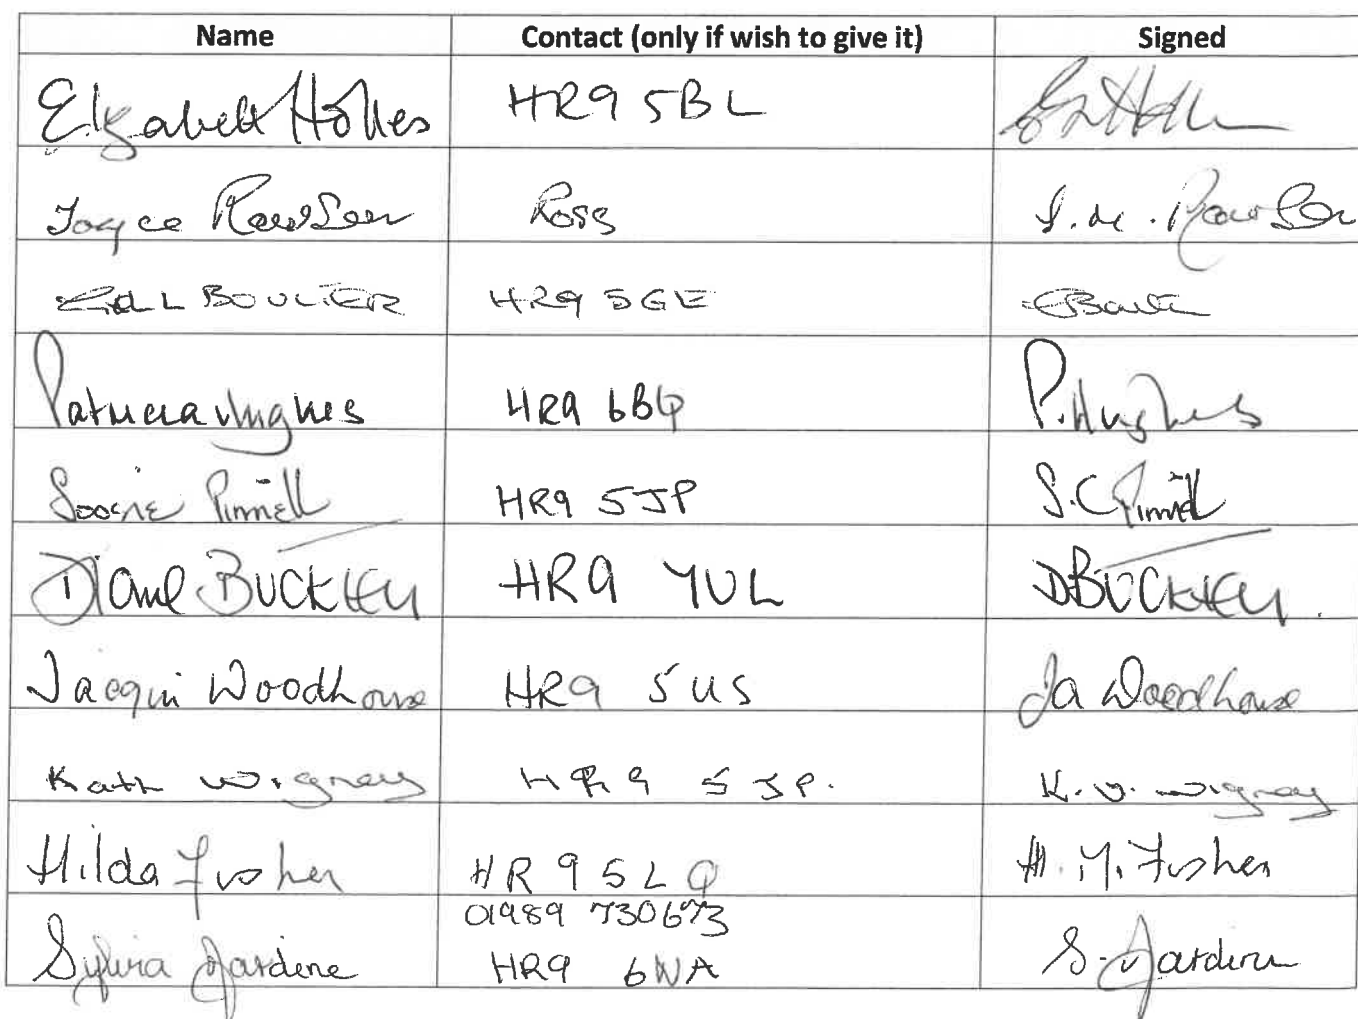 Name Contact (only if wish to give it) Signed
Elizabeth Holles HR9 5BL
Joyce Rawson Ross J.M. Rawson
BOULTER HR9 5GE
Patricia Hughes HR9 6BQ P. Hughes
Pinnell HR9 5JP S.C Pinnell
Diane BUCKLEY HR9 7UL D BUCKLEY.
Jacqui Woodhouse HR9 5US Ja Woodhouse
Kath Wignay HR9 5JP. K.V. Wignay
Hilda Fisher HR9 5LQ H.M. Fisher
01989 730673
Sylvia Jardine HR9 6NA S. Jardine